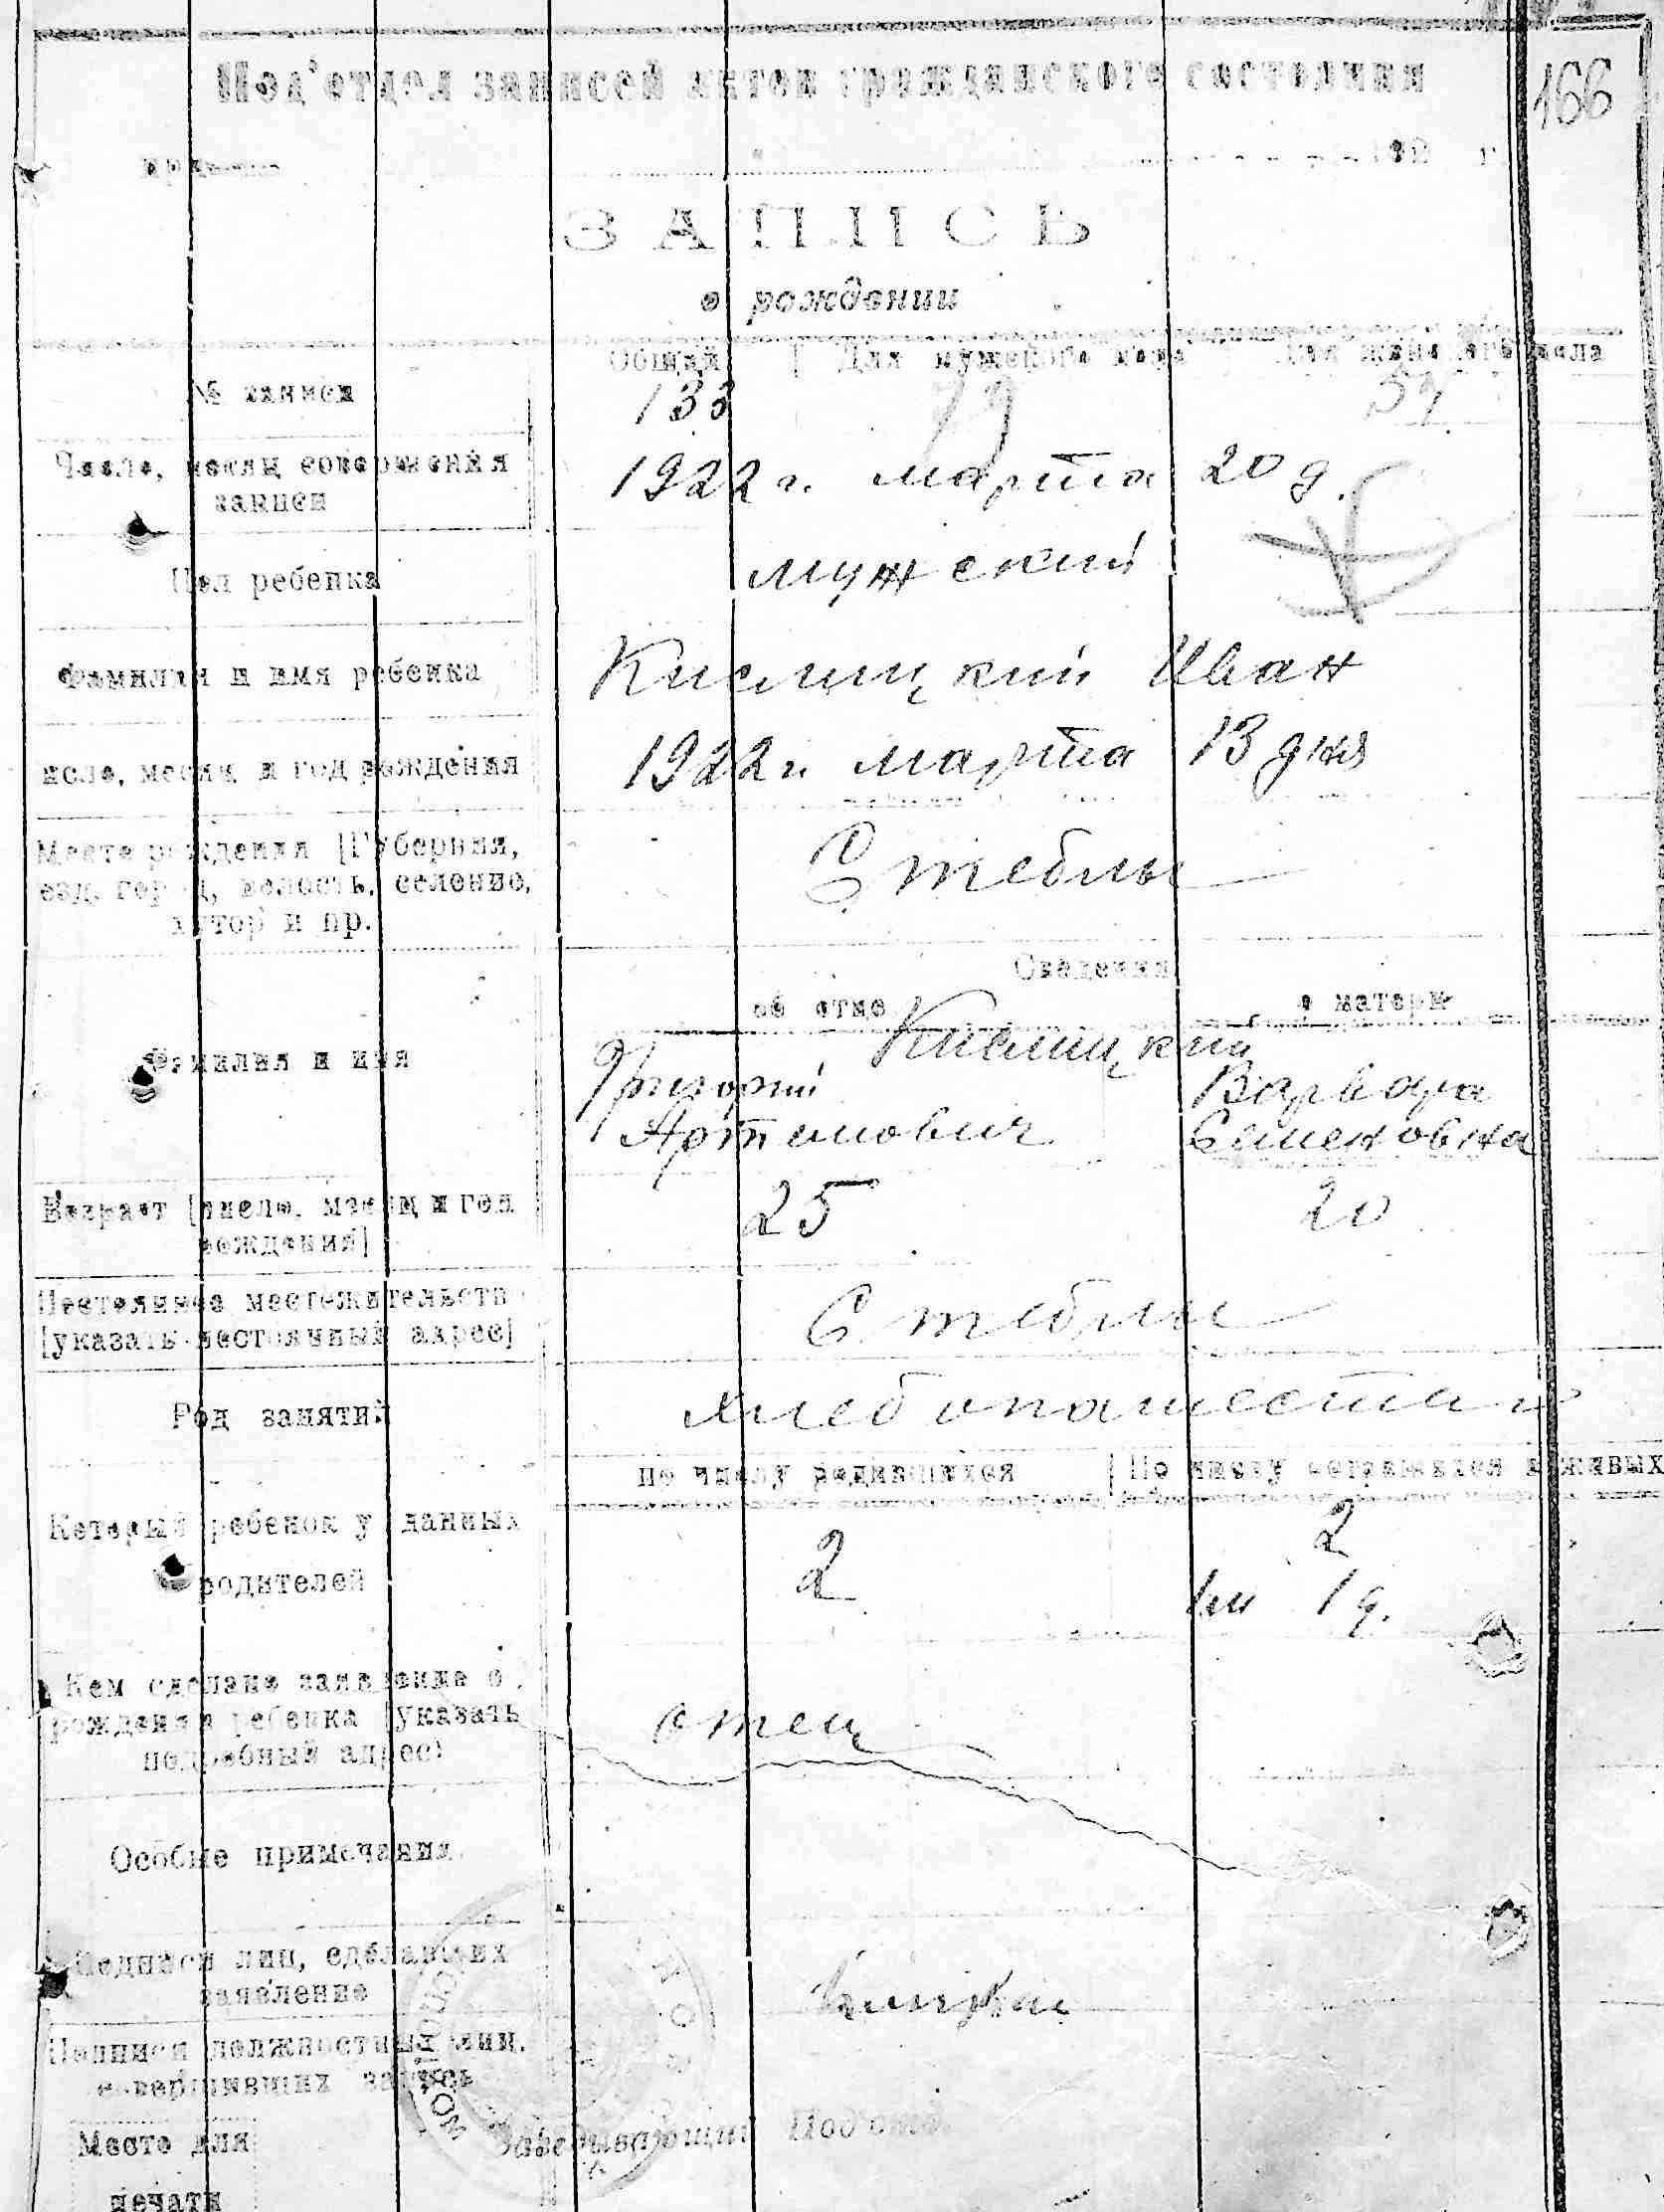 166
Под'отдел записей актов гражданского состояния
192 г.
ЗАПИСЬ
о рождении
Общий Для мужского пола Для женского пола
№ записи 133 79 54
Число, месяц совершения 1922 г. марта 20 д.
записи
Пол ребенка мужский
Фамилия и имя ребенка Кислицкий Иван
исло, месяц и год рождения 1922 г. марта 13 дня
Место рождения [Губерния, С. теблы
езд, город, волость, селение,
хутор и пр.
Сведения
об отце о матери
Кислицкий
Фамилия и имя Григорий Варвара
Артимович Семеновна
Возраст [число, месяц и год 25 20
рождения]
Постоянное местожительств Стеблы
[указать постоянный адрес]
Род занятий хлебопашество
по числу родившихся По числу оставшихся в живых
Который ребенок у данных 2 2
родителей 1 м 1 д.
Кем сделано заявление о
рождении ребенка [указать отец
подробный адрес)
Особые примечания.
Подписи лиц, сделавших
заявление
Подписи должностных лиц,
совершивших запись
Заведывающий Под'отд.
Место для
печати